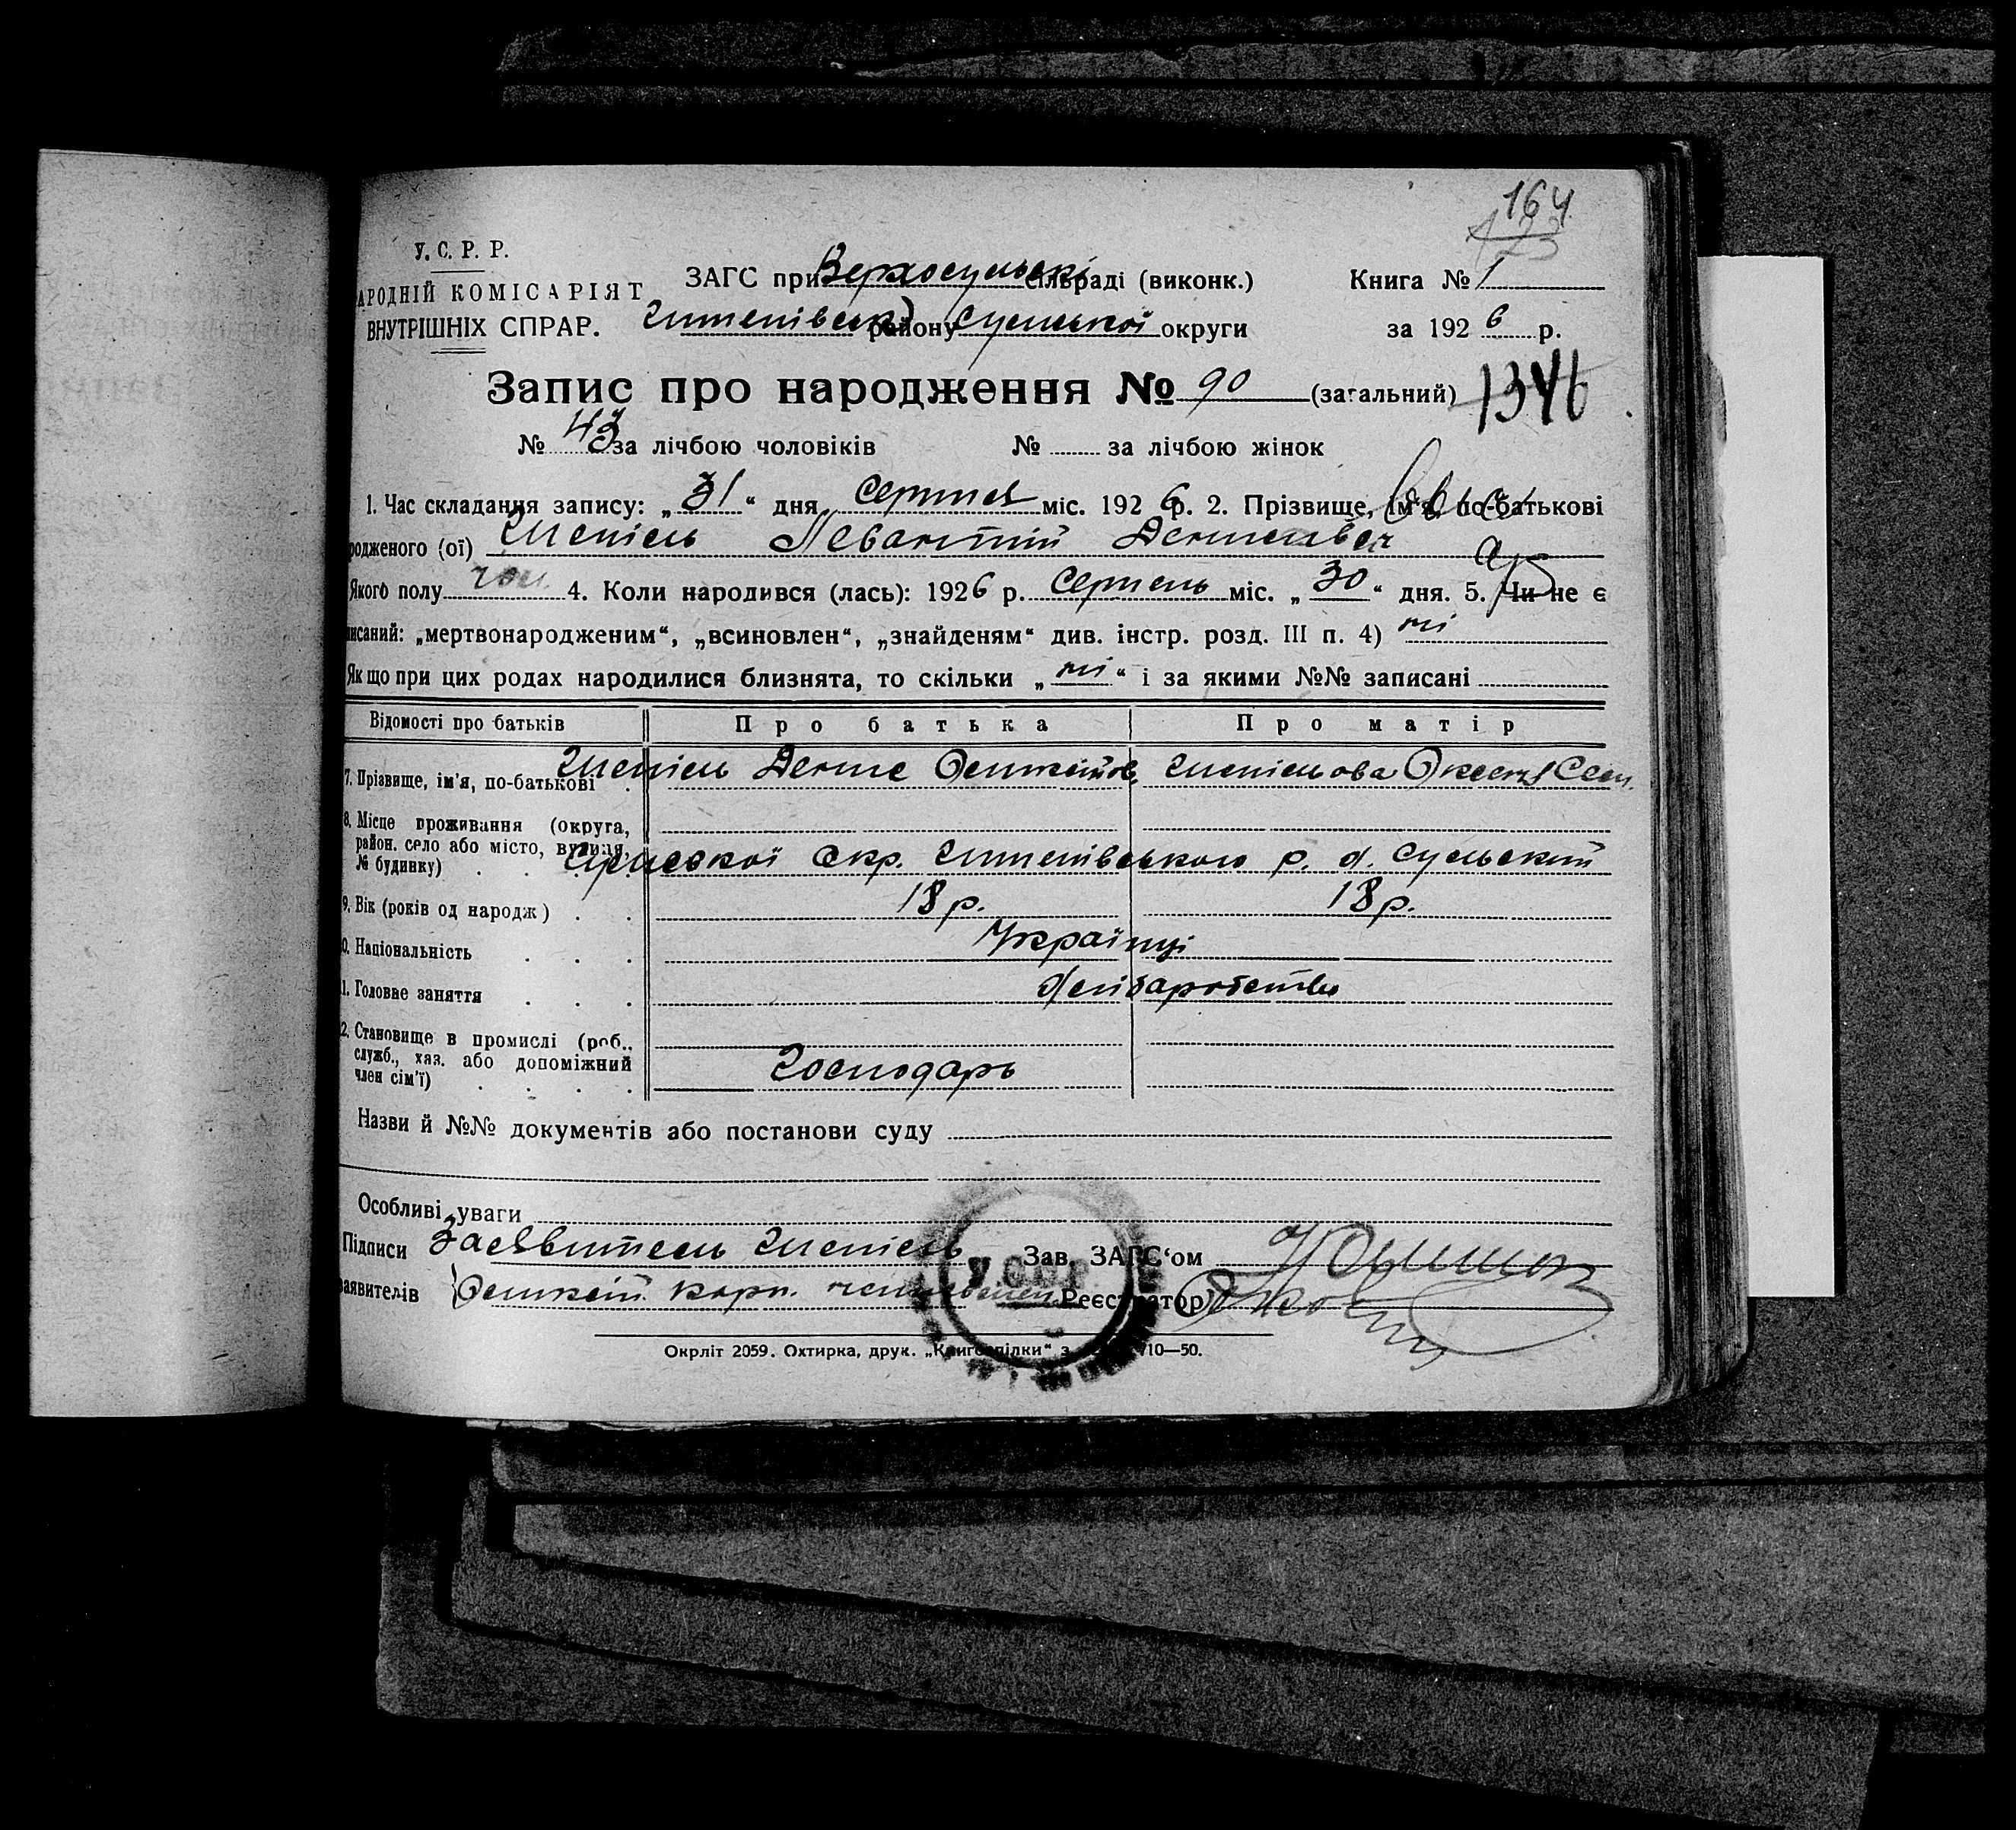 164
У. С. Р. Р.
АРОДНІЙ КОМІСАРІЯТ
ВНУТРІШНІХ СПРАР.
ЗАГС при Верхосульські сільраді (виконк.)
Книга № 1
Штепівськ району Сумської округи
за 1926 р.
Запис про народження № 90 (загальний) 1346
№ 43 за лічбою чоловіків № за лічбою жінок
1. Час складання запису: „31“ дня Серпня міс. 1926 р. 2. Прізвище, ім'я, по-батькові
родженого (ої) Шепіль Левонтій Денисович
Якого полу чол 4. Коли народився (лась): 1926 р. Серпень міс. „30“ дня. 5. Чи не є
писаний: „мертвонародженим“, „всиновлен“, „знайденям“ див. інстр. розд. III п. 4) ні
Якщо при цих родах народилися близнята, то скільки „ні“ і за якими №№ записані
Відомості про батьків Про батька Про матір
7. Прізвище, ім'я, по-батькові Шепіль Денис Шепільова
8. Місце проживання (округа,
район, село або місто, вулиця,
№ будинку) Сумської Окр. Штепівського р. х. Сульский
9. Вік (років од народж) 18 р. 18 р.
0. Національність Українці
1. Головне заняття Хліборобство
2. Становище в промислі (роб.,
служб., хаз. або допоміжний
член сім'ї) Господарь
Назви й №№ документів або постанови суду
Особливі уваги
Підписи Заявитель Шепіль Зав. ЗАГС'ом
заявителів Реєстратор
УСРР
Окрліт 2059. Охтирка, друк. „Книгоспілки“ з. 710—50.